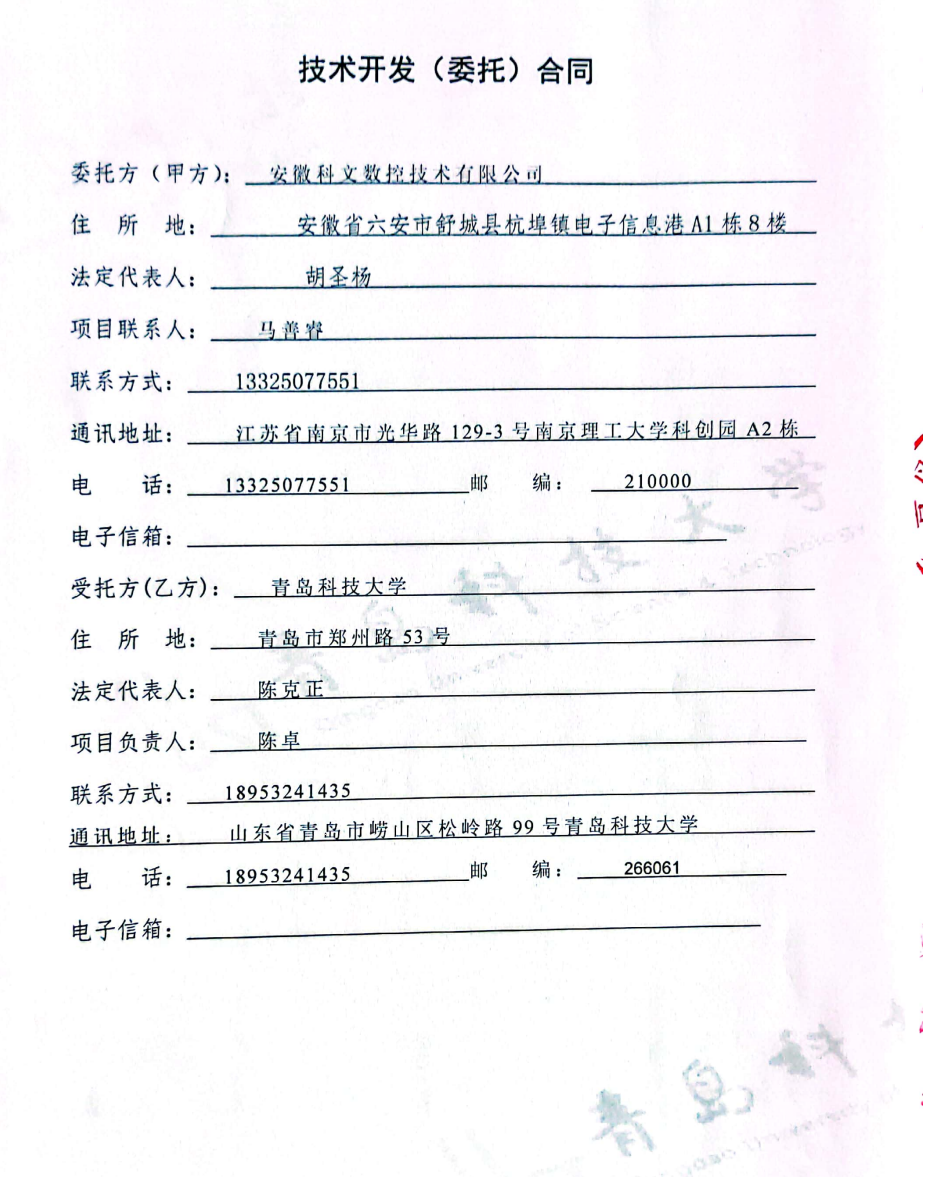 技术开发（委托）合同
委托方（甲方）：安徽科文数控技术有限公司
住 所 地：安徽省六安市舒城县杭埠镇电子信息港 A1 栋 8 楼
法定代表人：胡圣杨
项目联系人：马善睿
联系方式：13325077551
通讯地址：江苏省南京市光华路 129-3 号南京理工大学科创园 A2 栋
电 话：13325077551 邮 编：210000
电子信箱：
受托方(乙方)：青岛科技大学
住 所 地：青岛市郑州路 53 号
法定代表人：陈克正
项目负责人：陈卓
联系方式：18953241435
通讯地址：山东省青岛市崂山区松岭路 99 号青岛科技大学
电 话：18953241435 邮 编：266061
电子信箱：